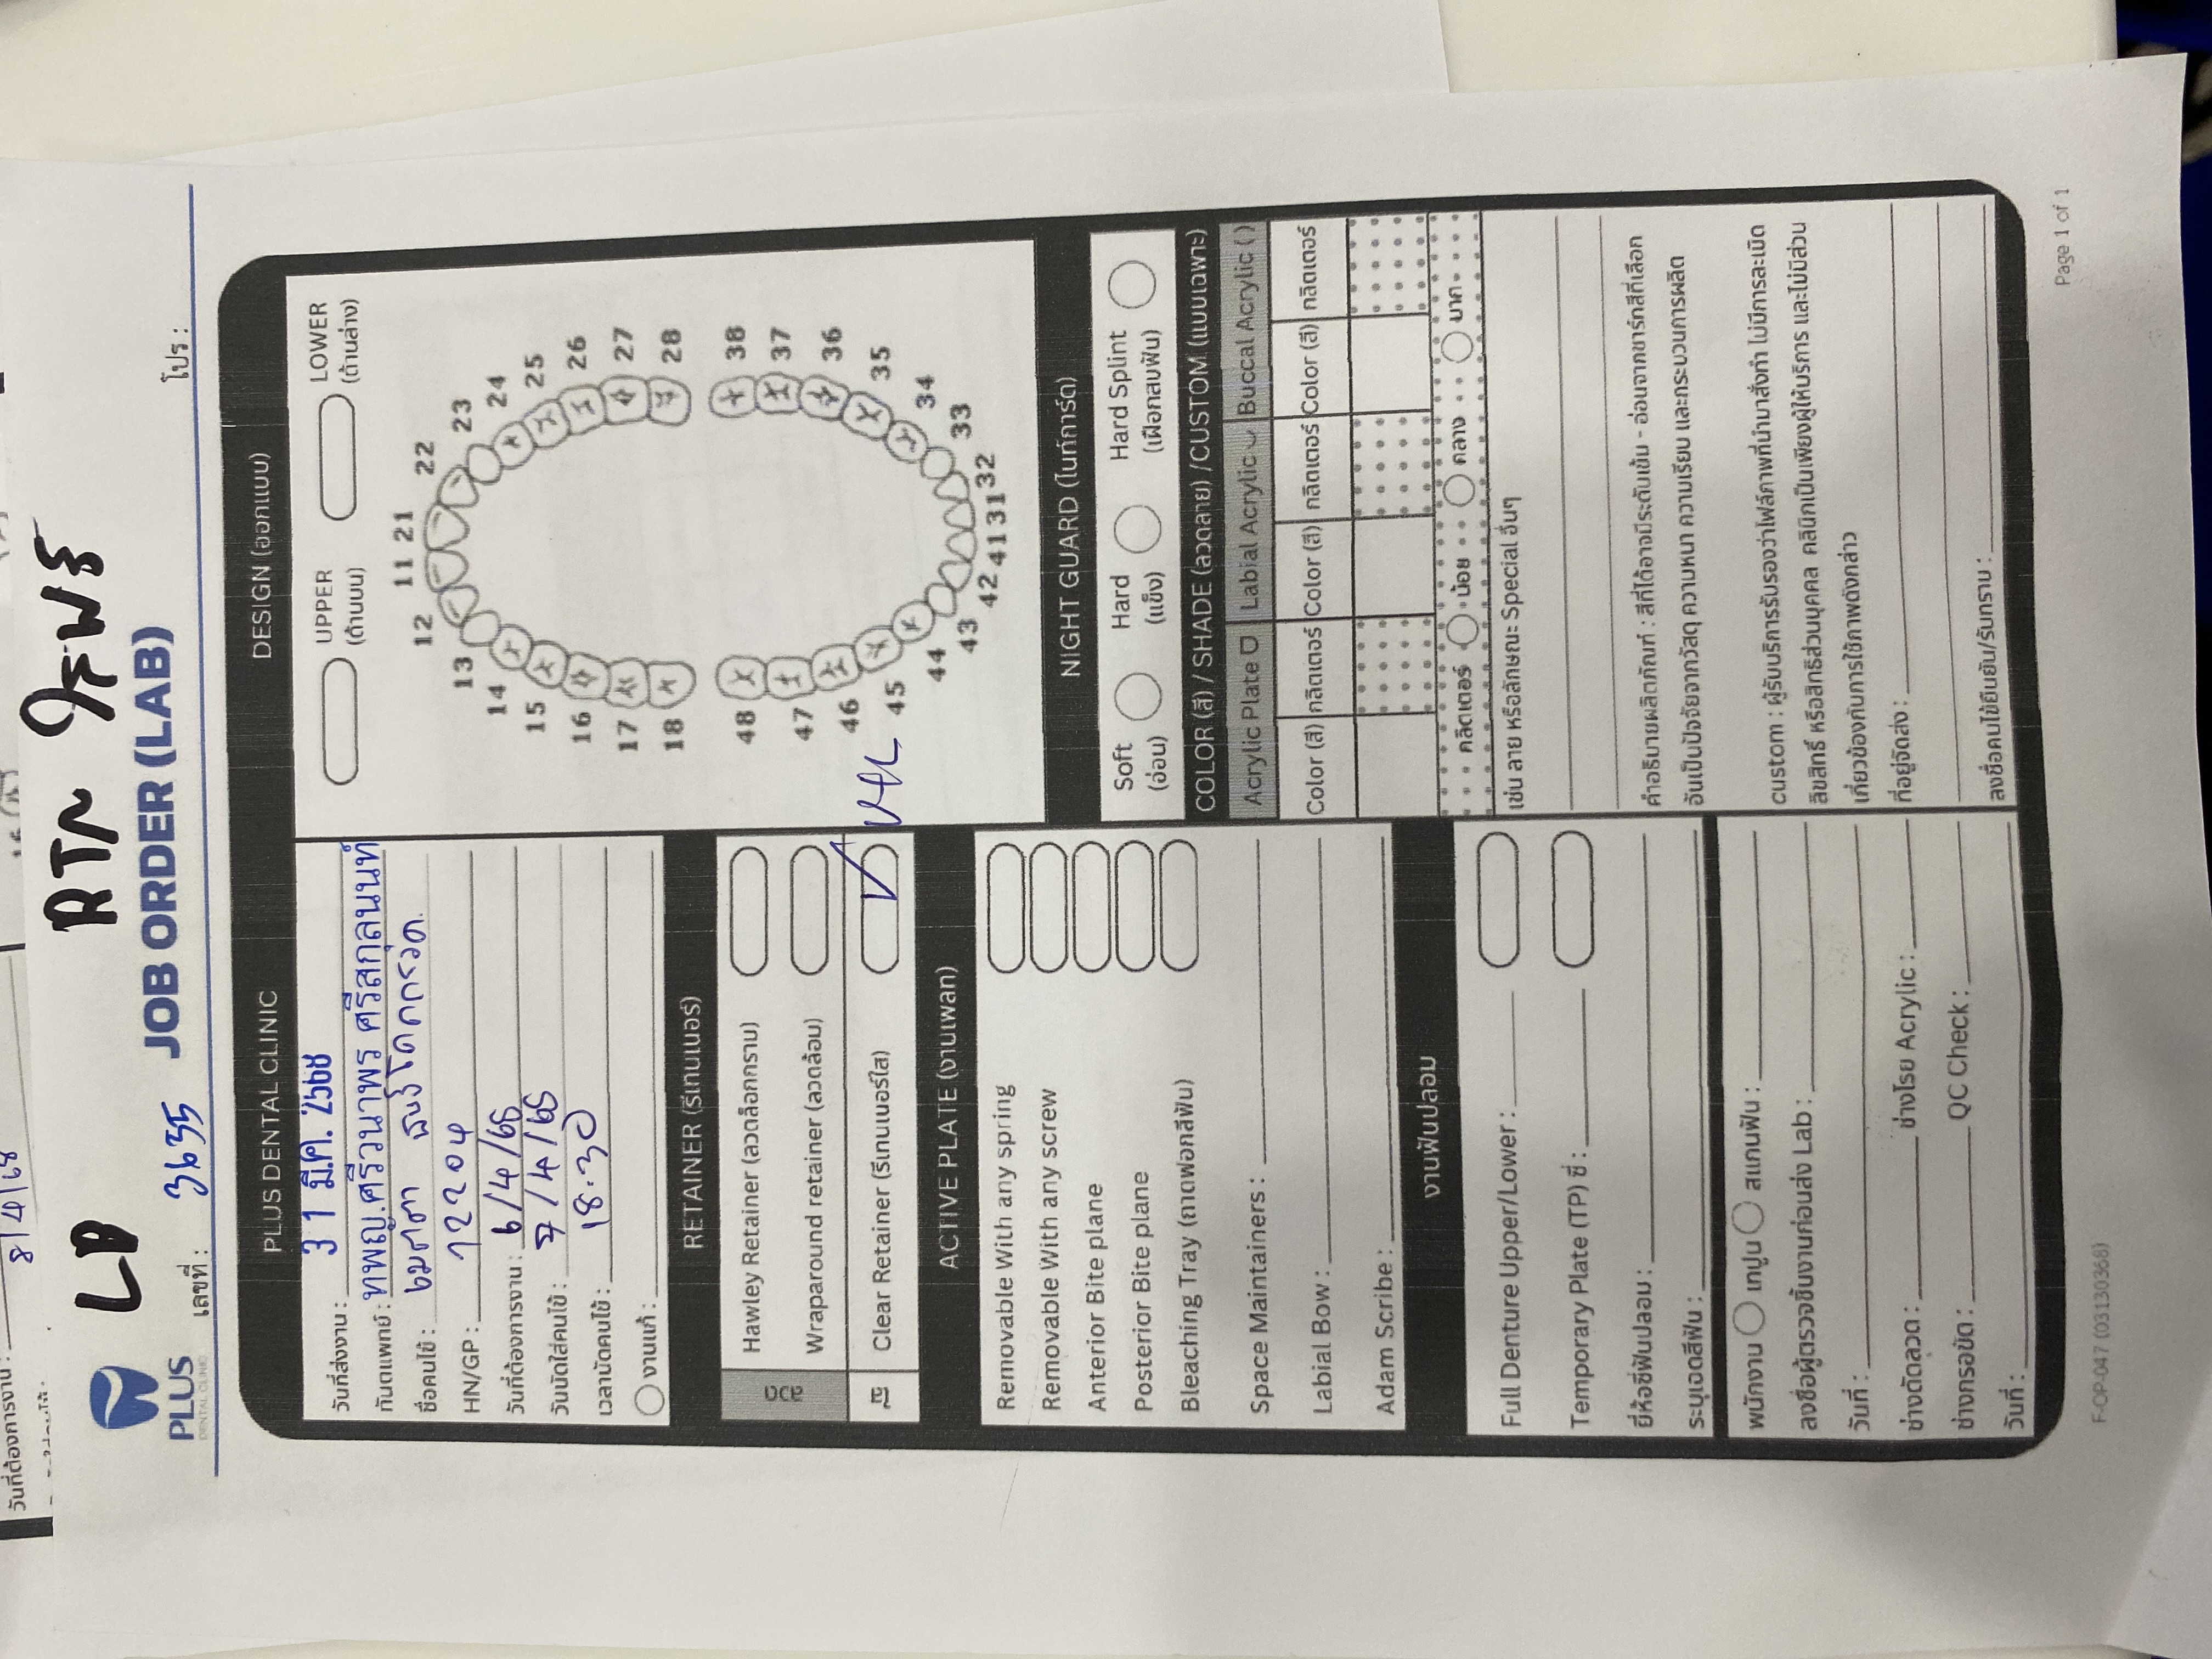 LD RTN
PLUS
DENTAL CLINIC
เลขที่ : 3635 JOB ORDER (LAB) โปร :
PLUS DENTAL CLINIC
วันที่ส่งงาน : 31 มี.ค. 2568
ทันตแพทย์ : ทพญ.ศรีวนาพร ศรีสกุลนนท์
ชื่อคนไข้ :
HN/GP : 12204
วันที่ต้องการงาน : 6/4/68
วันนัดใส่คนไข้ : 7/4/68
เวลานัดคนไข้ : 18.30
งานแก้ :
RETAINER (รีเทนเนอร์)
Hawley Retainer (ลวดล็อกกราม)
Wraparound retainer (ลวดล้อม)
Clear Retainer (รีเทนเนอร์ใส)
ACTIVE PLATE (งานเพลท)
Removable With any spring
Removable With any screw
Anterior Bite plane
Posterior Bite plane
Bleaching Tray (ถาดฟอกสีฟัน)
Space Maintainers :
Labial Bow :
Adam Scribe :
งานฟันปลอม
Full Denture Upper/Lower :
Temporary Plate (TP) ซี่ :
ยี่ห้อซี่ฟันปลอม :
ระบุเฉดสีฟัน :
พนักงาน เทปูน สแกนฟัน :
ลงชื่อผู้ตรวจชิ้นงานก่อนส่ง Lab :
วันที่ :
ช่างดัดลวด : ช่างโรย Acrylic :
ช่างกรอขัด : QC Check :
วันที่ :
DESIGN (ออกแบบ)
UPPER LOWER
(ด้านบน) (ด้านล่าง)
12 11 21 22
13 23
14 24
15 25
16 26
17 27
18 28
48 38
47 37
46 36
45 35
44 34
43 33
42 41 31 32
NIGHT GUARD (ไนท์การ์ด)
Soft Hard Hard Splint
(อ่อน) (แข็ง) (เฝือกสบฟัน)
COLOR (สี) / SHADE (ลวดลาย) /CUSTOM (แบบเฉพาะ)
Acrylic Plate Labial Acrylic Buccal Acrylic ( )
Color (สี) กลิตเตอร์ Color (สี) กลิตเตอร์ Color (สี) กลิตเตอร์
กลิตเตอร์ น้อย กลาง มาก
เช่น ลาย หรือลักษณะ Special อื่นๆ
คำอธิบายผลิตภัณฑ์ : สีที่ได้อาจมีระดับเข้ม - อ่อนจากชาร์ทสีที่เลือก
อันเป็นปัจจัยจากวัสดุ ความหนา ความเรียบ และกระบวนการผลิต
custom : ผู้รับบริการรับรองว่าไฟล์ภาพที่นำมาสั่งทำ ไม่มีการละเมิด
ลิขสิทธิ์ หรือสิทธิส่วนบุคคล คลินิกเป็นเพียงผู้ให้บริการ และไม่มีส่วน
เกี่ยวข้องกับการใช้ภาพดังกล่าว
ที่อยู่จัดส่ง :
ลงชื่อคนไข้ยืนยัน/รับทราบ :
F-OP-047 (03130368)
Page 1 of 1
วันที่ต้องการงาน : 8/4/68